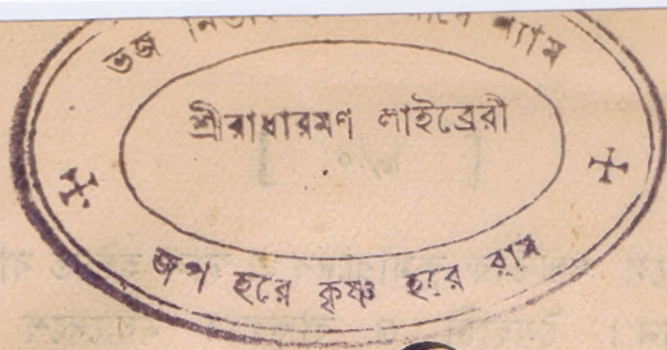 ভজ নিতাই শ্যাম
শ্রীরাধারমণ লাইব্রেরী
জপ হরে কৃষ্ণ হরে রাম